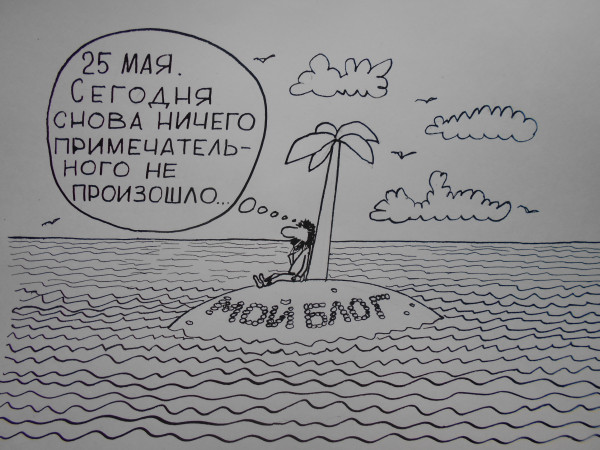 25 МАЯ.
СЕГОДНЯ
СНОВА НИЧЕГО
ПРИМЕЧАТЕЛЬ-
НОГО НЕ
ПРОИЗОШЛО...
МОЙ БЛОГ